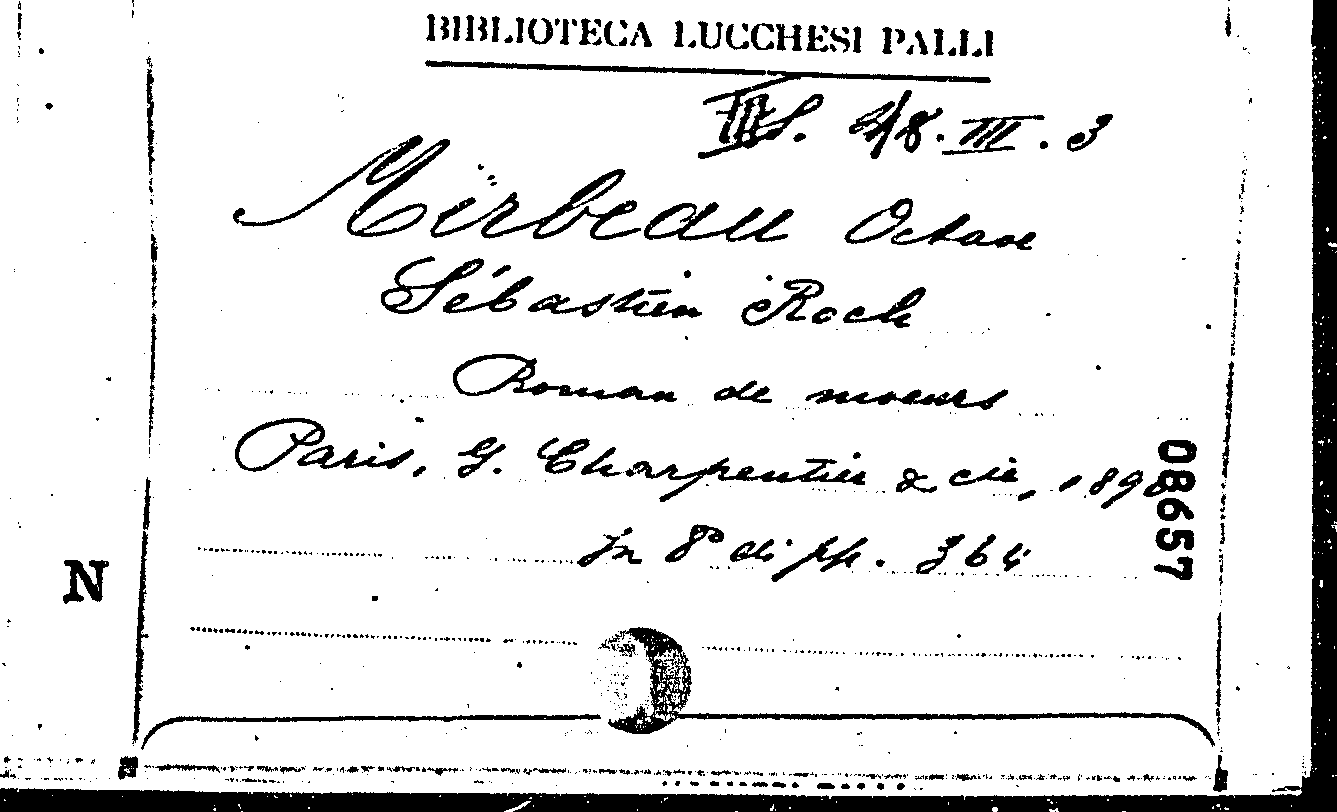 BIBLIOTECA LUCCHESI PALLI
III. 3
Mirbeau Octave
Sébastien Roch
Roman de moeurs
Paris, G. Charpentier & cie, 1890
in 8º di pp. 364
08657
N